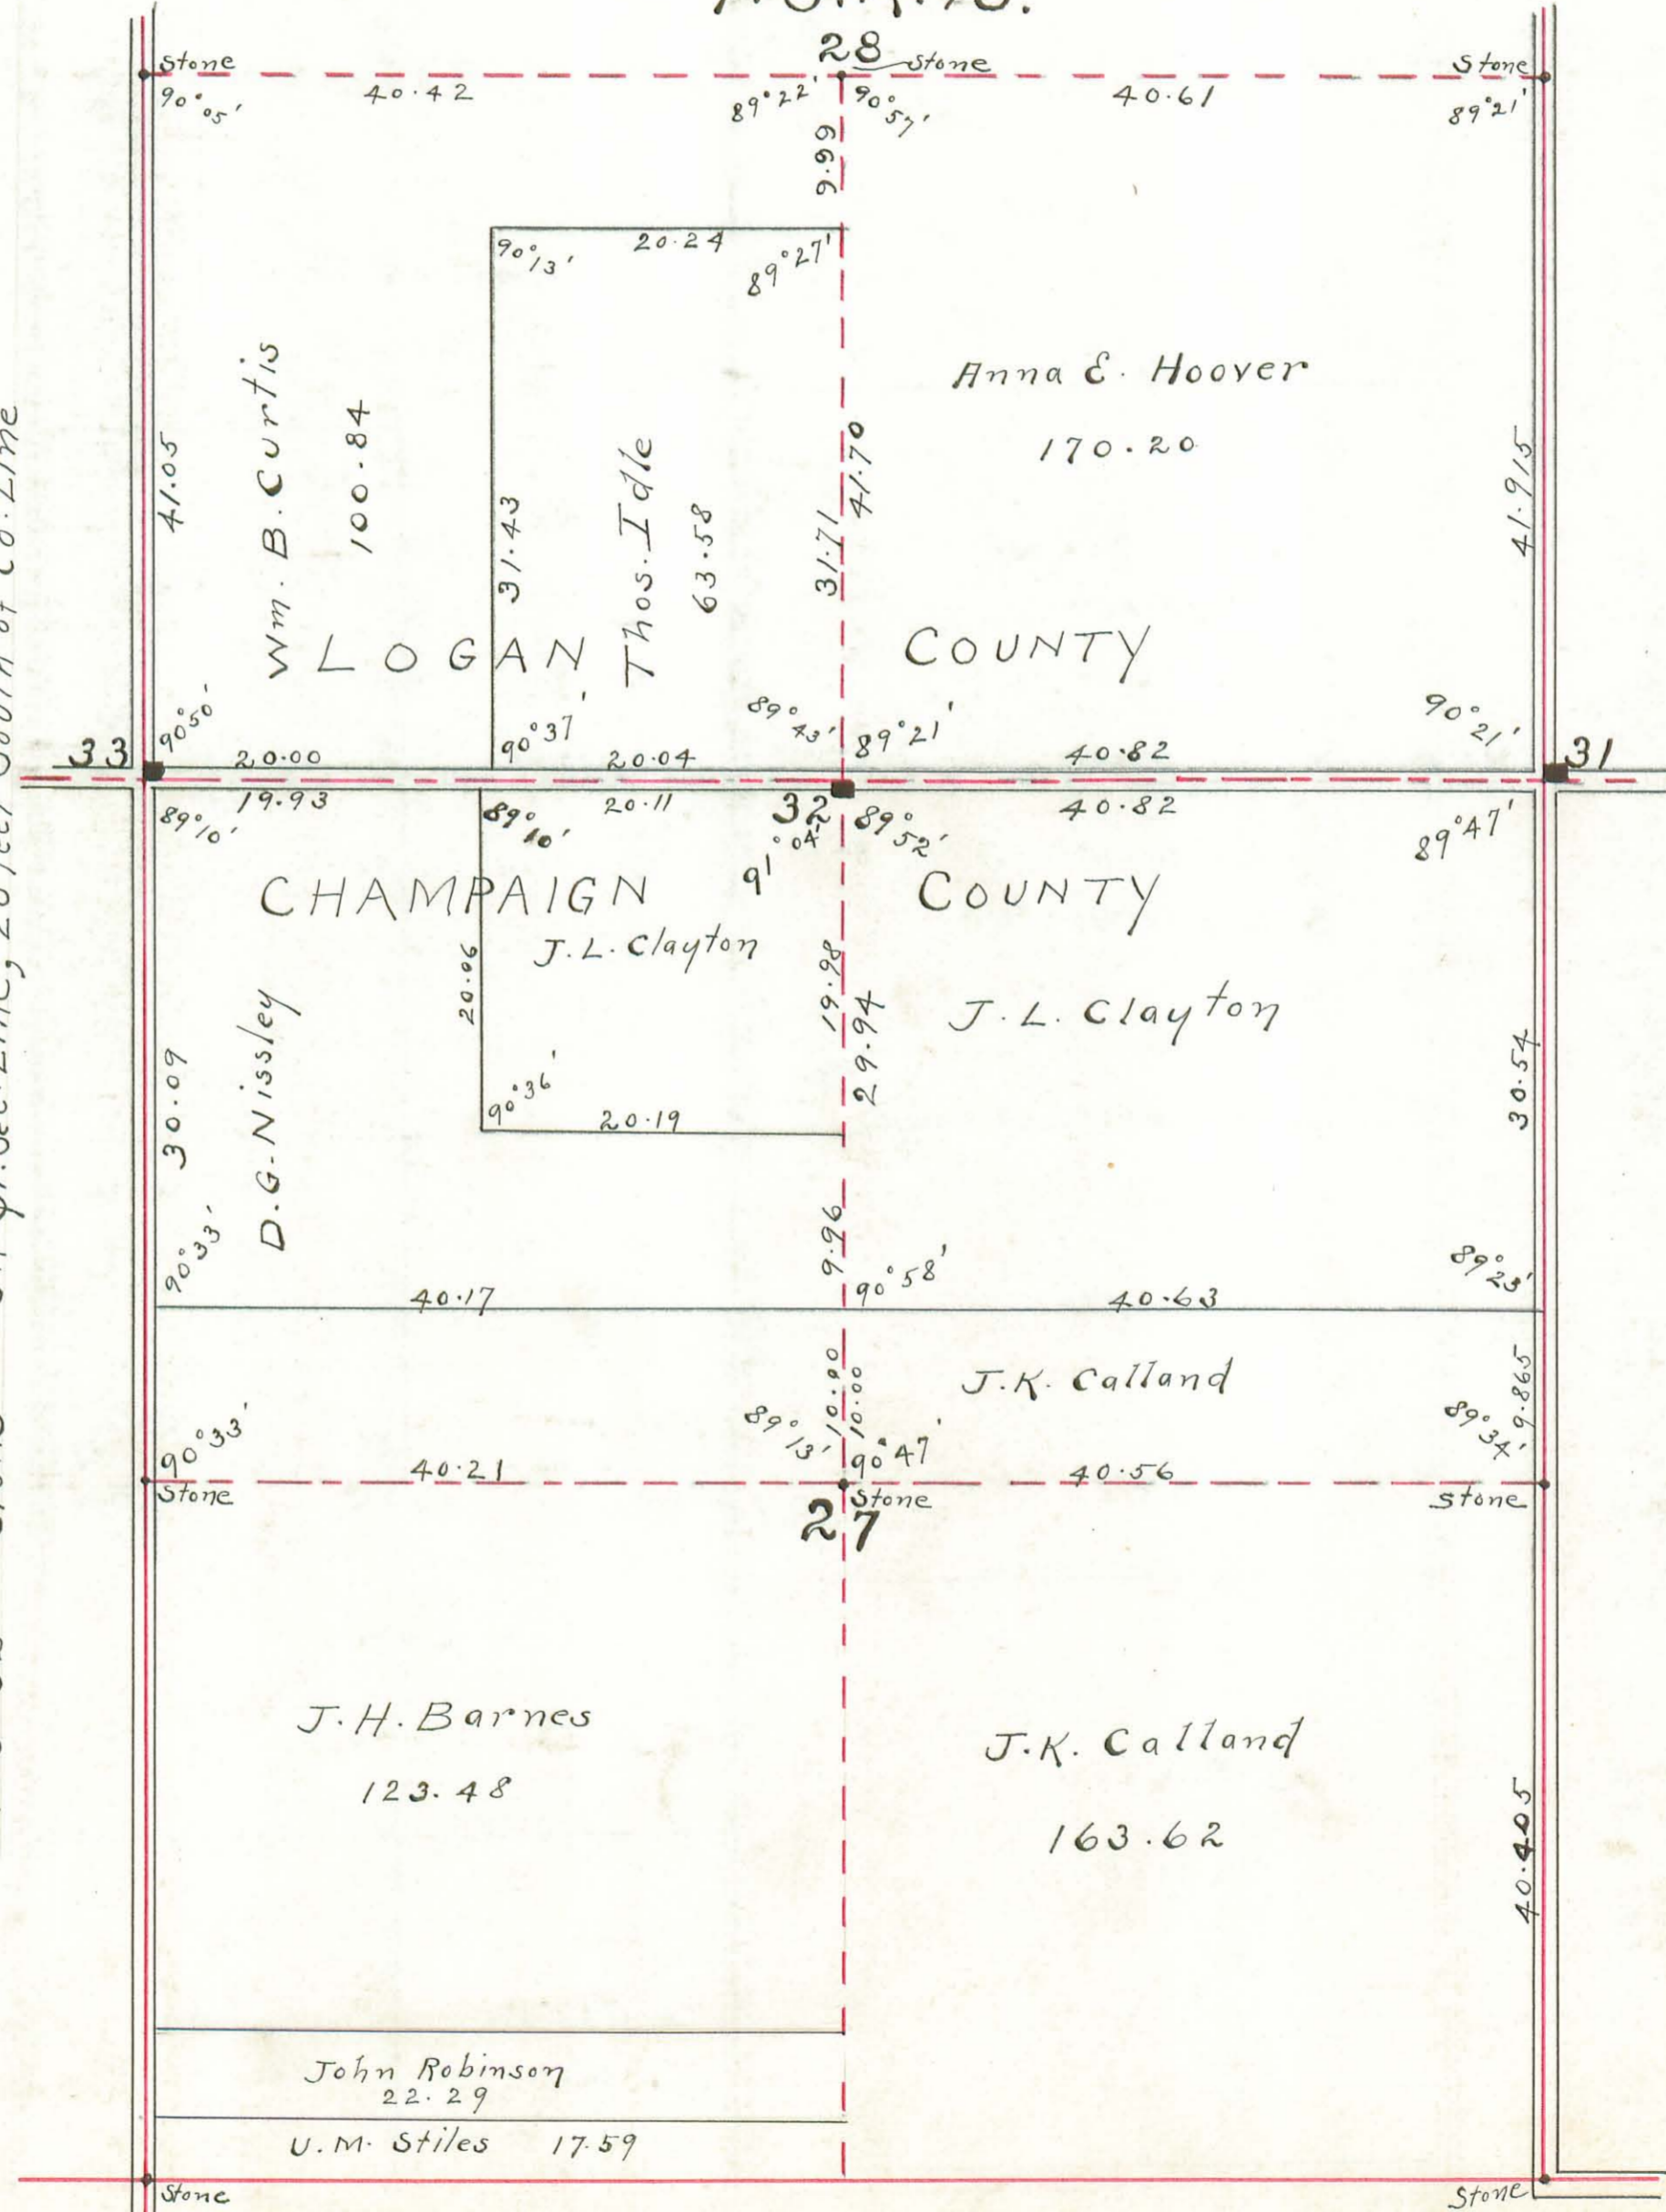 28
Stone
Stone
Stone
90°05'
40.42
89°22'
90°57'
40.61
89°21'
9.99
90°13'
20.24
89°27'
Wm. B. Curtis
100.84
41.05
31.43
Thos. Idle
63.58
31.71
41.70
Anna E. Hoover
170.20
41.915
LOGAN COUNTY
90°50'
90°37'
89°43'
89°21'
90°21'
33
20.00
20.04
40.82
31
19.93
20.11
32
40.82
89°10'
89°10'
91°04'
89°52'
89°47'
CHAMPAIGN COUNTY
J.L. Clayton
20.06
19.98
29.94
J.L. Clayton
D.G. Nissley
30.09
30.54
90°36'
20.19
9.96
90°33'
90°58'
89°23'
40.17
40.63
10.00
10.00
J.K. Calland
9.865
90°33'
89°13'
90°47'
89°34'
40.21
40.56
Stone
Stone
Stone
27
J.H. Barnes
123.48
J.K. Calland
163.62
40.405
John Robinson
22.29
U.M. Stiles 17.59
Stone
Stone
South of Co. Line